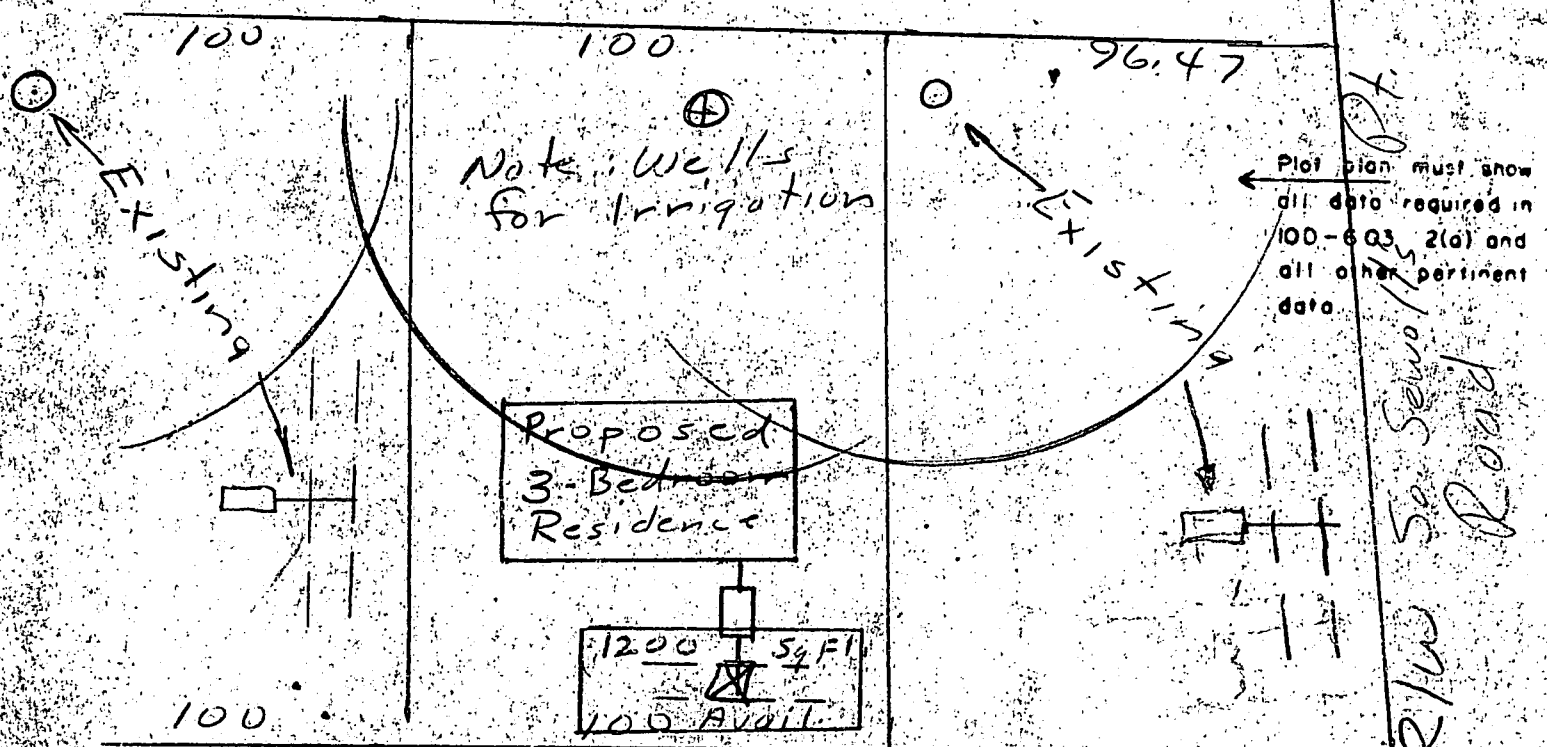 100
100
96.47
Existing
Note: Wells
for Irrigation
Existing
Plot plan must show
all data required in
100-6.03, 2(a) and
all other pertinent
data
Proposed
3-Bedroom
Residence
1200 Sq Ft
100 Avail.
100
So. Sewall's Pt.
Road
R/W